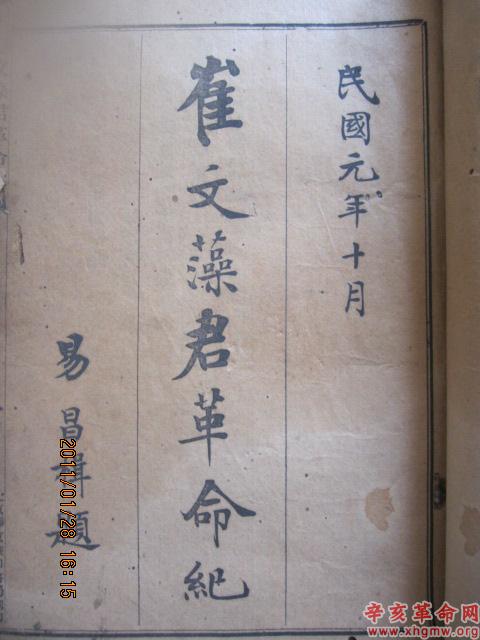 民國元年十月
崔文藻君革命紀
易昌楫題
2011/01/28 16:15
辛亥革命网
www.xhgmw.org